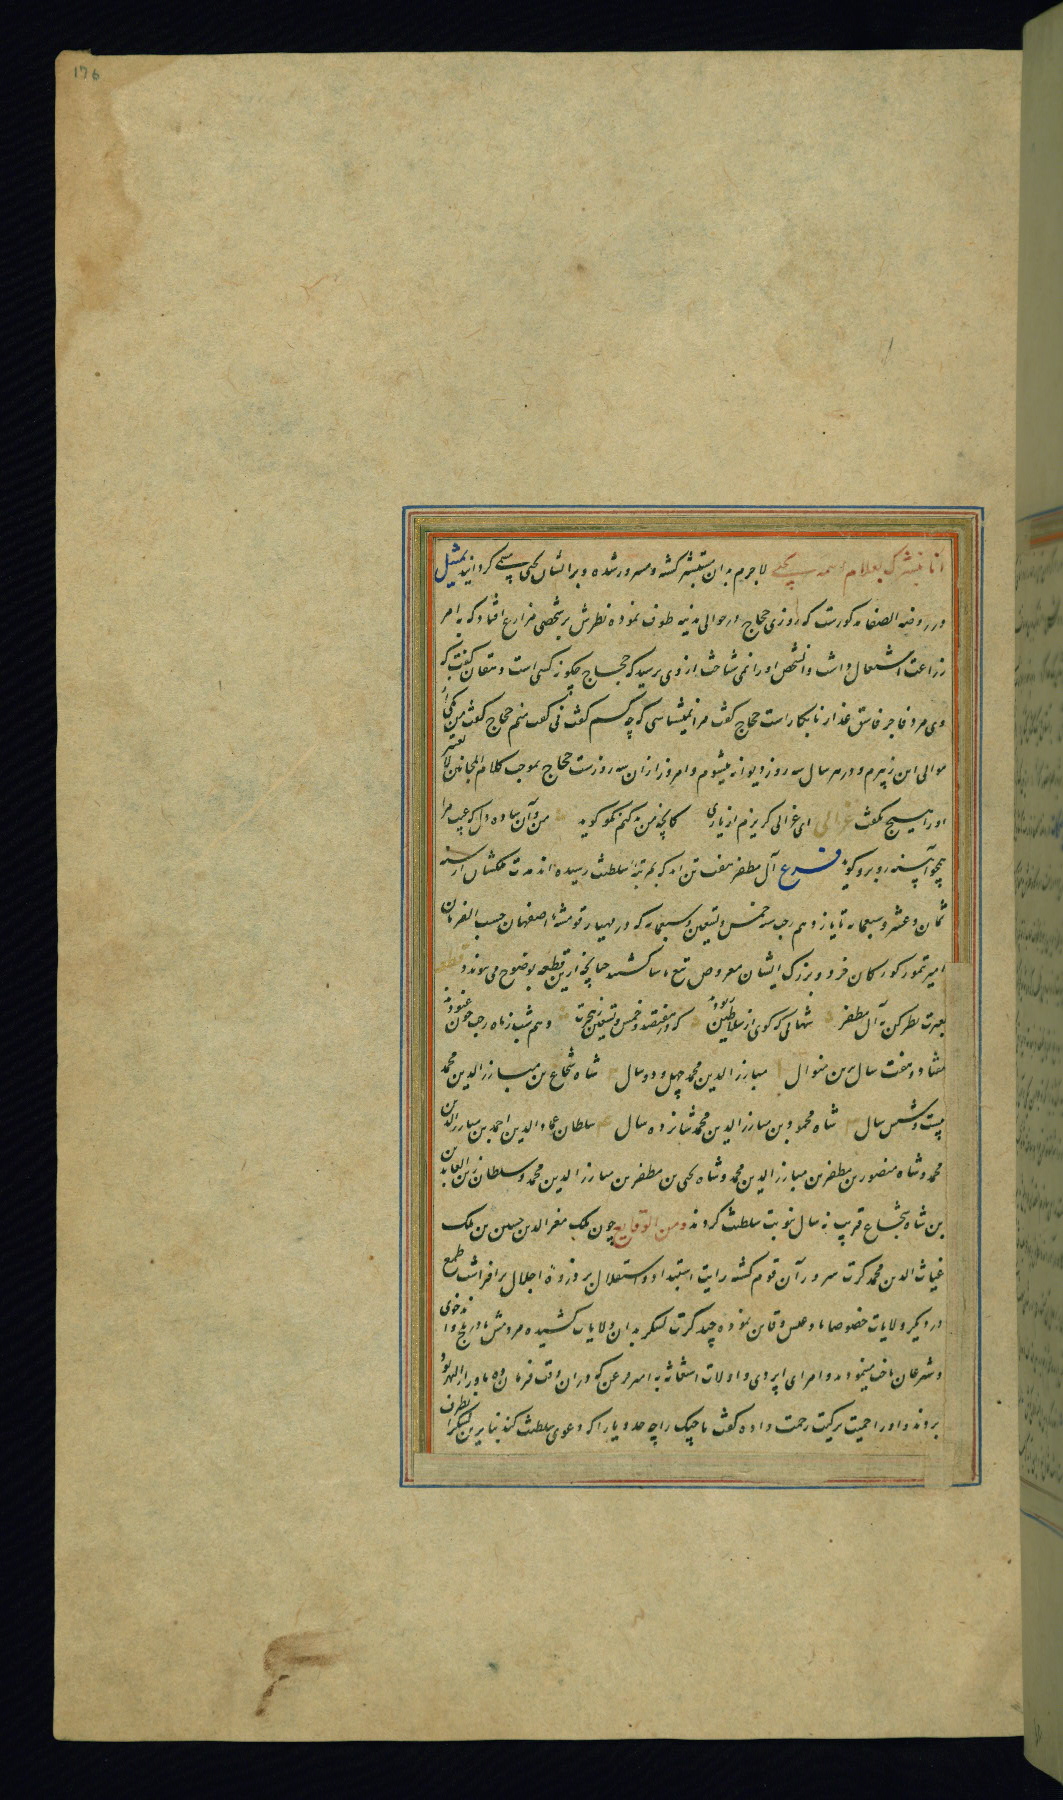 176
انا نبشرک بغلام اسمه یحیی لاجرم بدان مستبشر گشته و مسرور شده و برا ایشان یحیی مسمی گردانید تمثیل
در روضه الصفا مذکورست که روزی حجاج در حوالی مدینه طوف نموده نظرش بر شخصی مزارع افتاد که به امر
زراعت اشتغال داشت و آنشخص او را نمی شناخت از وی پرسید که حجاج چگونه کسی است دهقان گفت که
وی مرد فاجر فاسق غدار نابکار است حجاج گفت مرا نمیشناسی که چه کسم گفت نی گفت منم حجاج گفت من یکی از
موالی ابن زبیرم و در هر سال سه روز دیوانه میشوم و امروز از آن سه روزست حجاج بموجب کلام المجانین لا یعتبر
او را هیچ نگفت غزالی ای غزالی گریزم از یاری که اگر من بد کنم نکو گوید من و آن ساده دل که عیب مرا
همچو آیینه روبرو گوید فرع آل مظفر هفت تن اند که بمرتبه سلطنت رسیده اند مدت ملکشان از سنه
ثمان و عشر و سبعمایه تا یازدهم رجب سنه خمس و تسعین و سبعمایه که در مهیار قومشه اصفهان حسب الفرمان
امیر تیمور کورکان خرد و بزرگ ایشان معروض تیغ یاسا گشتند چنانچه ازین قطعه بوضوح می پیوندد قطعه
بعبرت نظر کن به آل مظفر شهانی که گوی از سلاطین ربودند که در هفتصد و خمس و تسعین ز هجرت دهم شب ز ماه رجب چون غنودند
هفتاد و هفت سال برین منوال مبارزالدین محمد چهل و دو سال شاه شجاع بن مبارزالدین محمد
بیست و شش سال شاه محمود بن مبارزالدین محمد شانزده سال سلطان عمادالدین احمد بن مبارزالدین
محمد و شاه منصور بن مظفر بن مبارزالدین محمد و شاه یحیی بن مظفر بن مبارزالدین محمد و سلطان زین العابدین
بن شاه شجاع قریب نه سال نوبت سلطنت کردند و من الوقایع چون ملک معزالدین حسین بن ملک
غیاث الدین محمد کرت سرور آن قوم گشته رایت استبداد و استقلال بر ذروه اجلال برافراشت طمع
در دیگر ولایات خصوصا بادغیس و قاین نموده چند کرت لشکر بدان ولایات کشیده مردمش تا در بلخ و اندخوی
و شبرغان تاخت مینمودند و امرای اپردی و اولات استغاثه به امیر قزغن که در آن وقت فرمان ده ماوراءالنهر بود
بردند و او را حمیت ترکیت رخصت داده گفت تاجیک را چه حد و یارا که دعوی سلطنت کند بنابرین لشکر بطرف